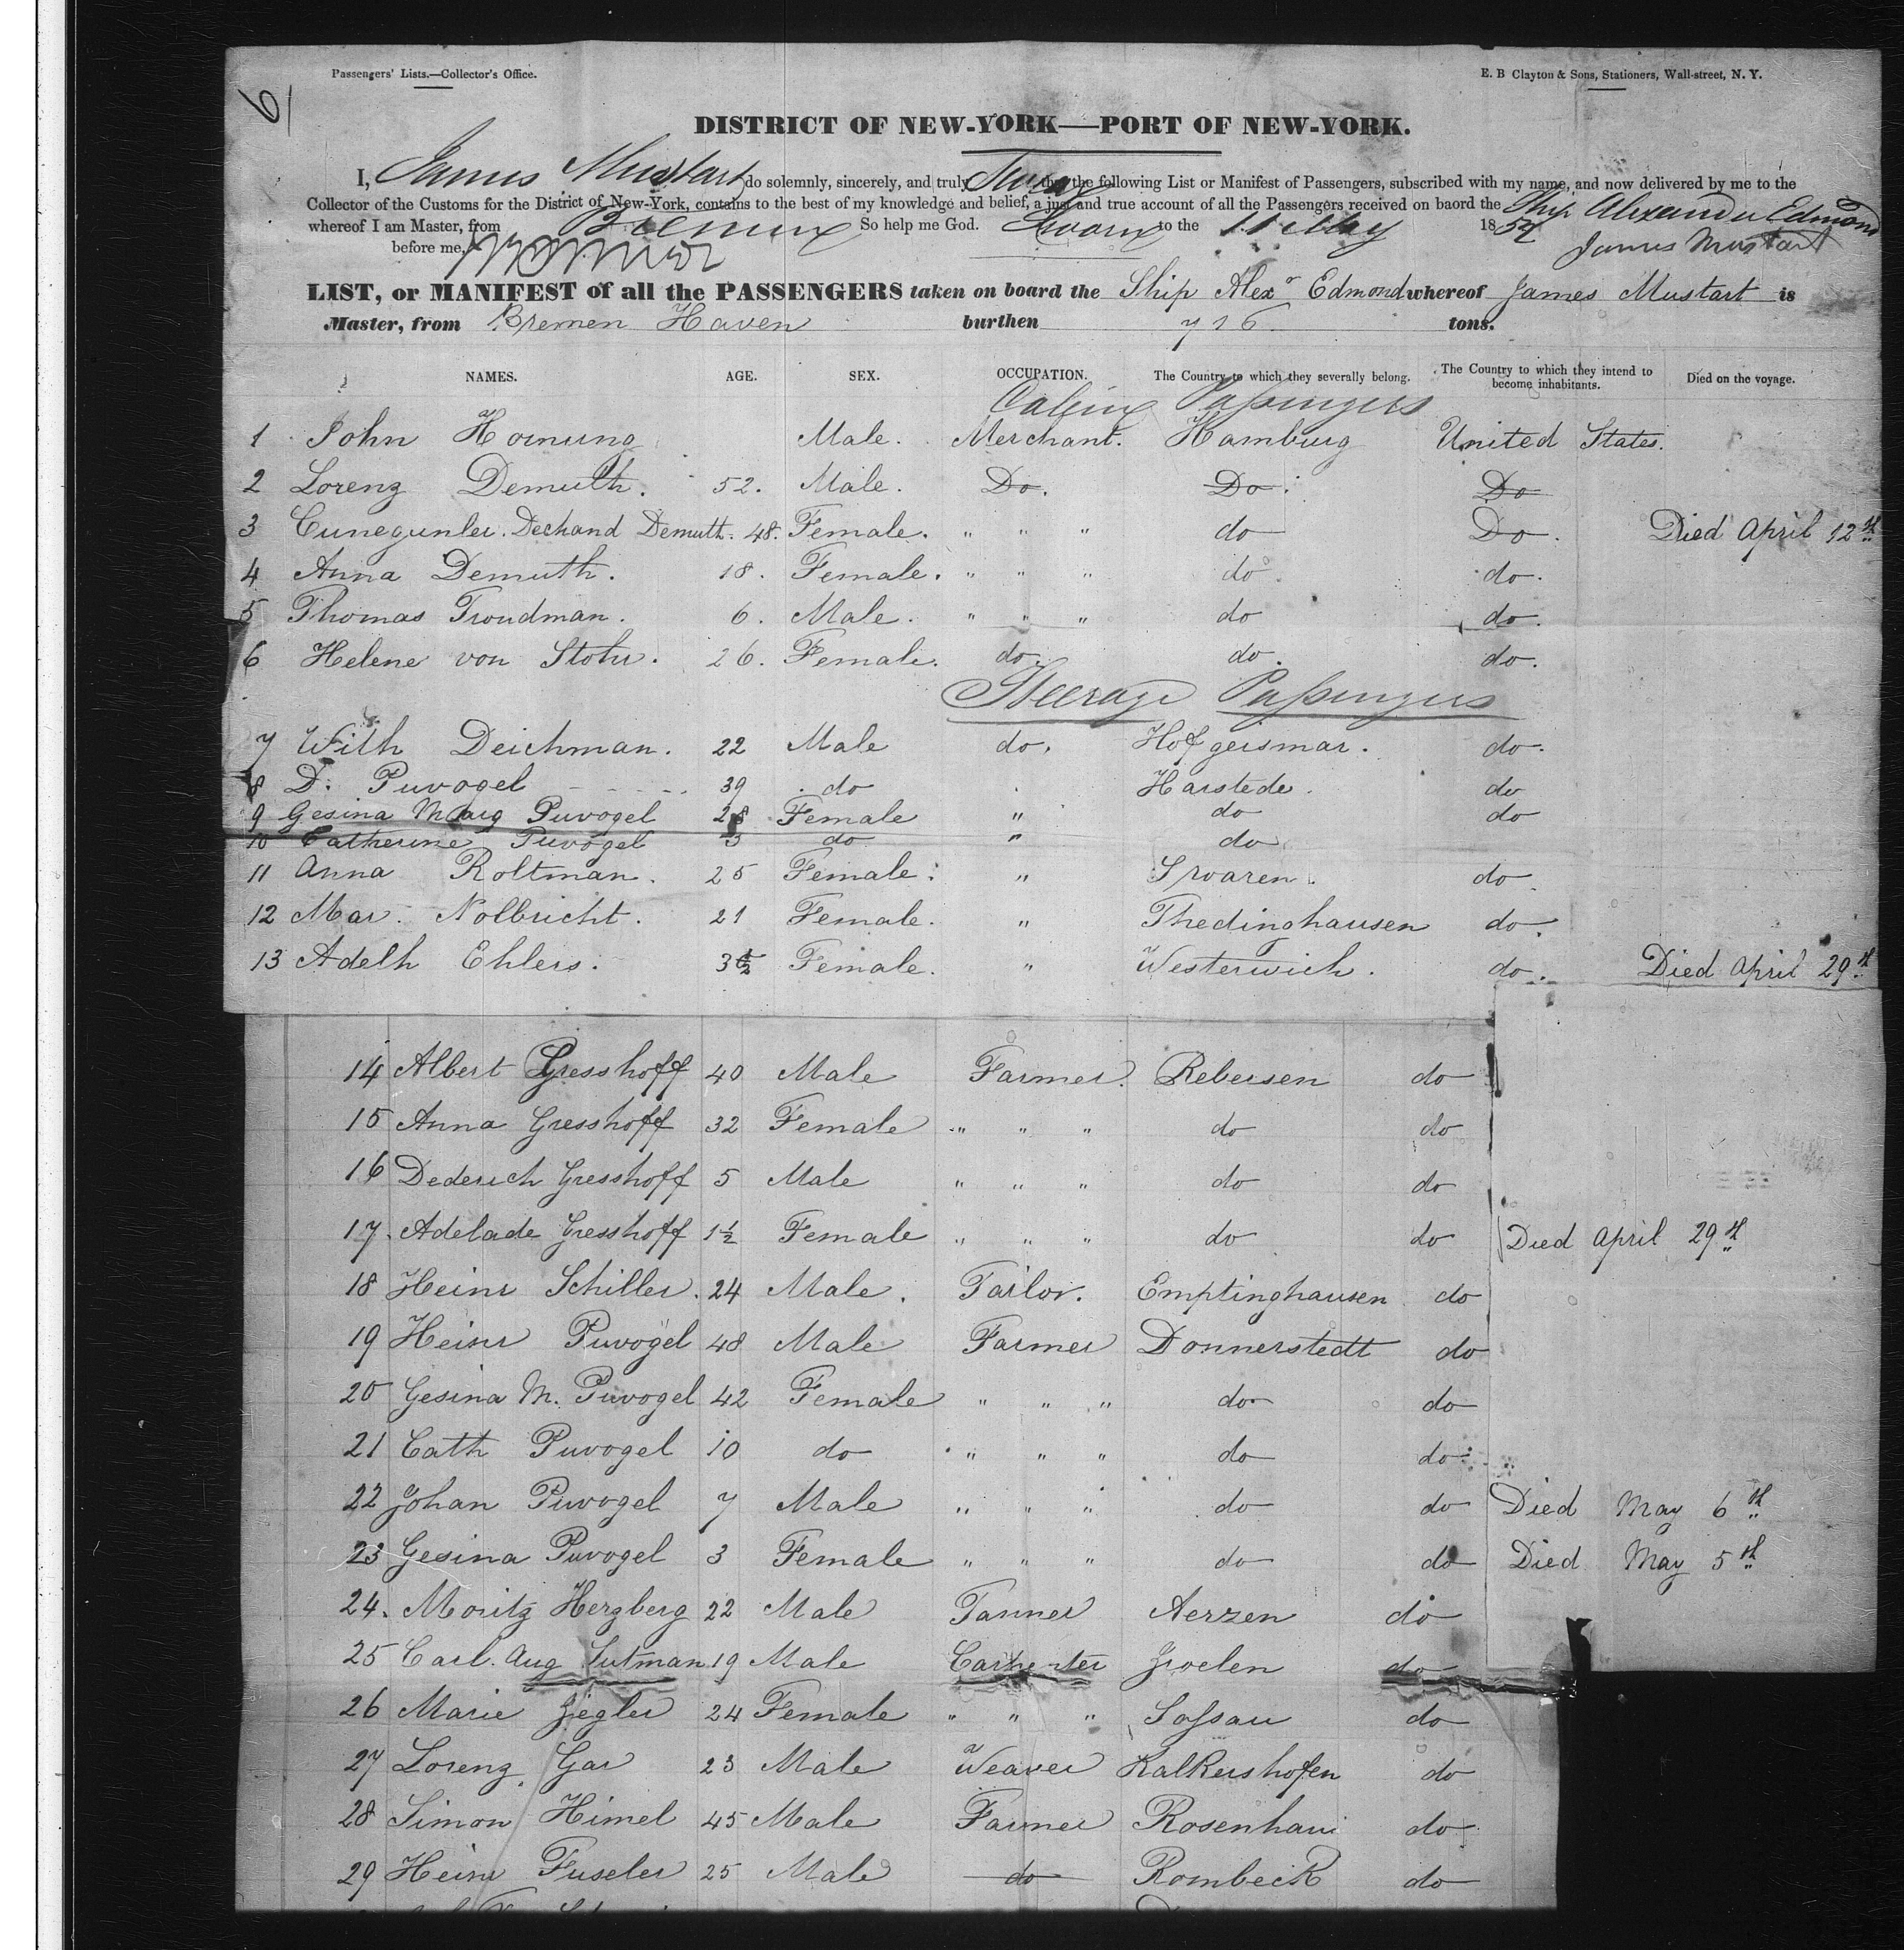 Passengers' Lists.—Collector's Office.
E. B Clayton & Sons, Stationers, Wall-street, N. Y.
6
DISTRICT OF NEW-YORK—PORT OF NEW-YORK.
I, James Mustart do solemnly, sincerely, and truly Swear that the following List or Manifest of Passengers, subscribed with my name, and now delivered by me to the
Collector of the Customs for the District of New-York, contains to the best of my knowledge and belief, a just and true account of all the Passengers received on baord the Ship Alexander Edmond
whereof I am Master, from Bremen So help me God. Sworn to the 11 May 1854
before me, James Mustart
LIST, or MANIFEST of all the PASSENGERS taken on board the Ship Alexr Edmond whereof James Mustart is
Master, from Bremen Haven burthen 726 tons.
NAMES. AGE. SEX. OCCUPATION. The Country to which they severally belong. The Country to which they intend to become inhabitants. Died on the voyage.
Cabin Passengers
1 John Hornung Male. Merchant. Hamburg United States.
2 Lorenz Demuth. 52. Male. Do. Do. Do
3 Cunegunler. Dechand Demuth. 48. Female. " " " do Do. Died April 12th
4 Anna Demuth. 18. Female. " " " do. do.
5 Thomas Troudman. 6. Male. " " " do do.
6 Helene von Stohr. 26. Female. do. do. do.
Steerage Passengers
7 Wilh Deichman. 22 Male do. Hofgeismar. do.
8 D. Puvogel 39 do Harstede. do
9 Gesina Marg Puvogel 28 Female " do do
10 Catherine Puvogel 3 do " do
11 Anna Roltman. 25 Female. " do
12 Mar. Nolbricht. 21 Female. " Thedinghausen do.
13 Adelh Ehlers. 3½ Female. " Westerwich. do. Died April 29th
14 Albert Gresshoff 40 Male Farmer. Rebersen do
15 Anna Gresshoff 32 Female " " " do do
16 Dederich Gresshoff 5 Male " " " do do
17. Adelade Gresshoff 1½ Female " " " do do Died April 29th
18 Heinr Schiller. 24 Male. Tailor. Emptinghausen do
19 Heinr Puvogel 48 Male Farmer Donnerstedt do
20 Gesina M. Puvogel 42 Female " " " do do
21 Cath Puvogel 10 do " " " do do
22 Johan Puvogel 7 Male " " " do do Died May 6th
23 Gesina Puvogel 3 Female " " " do do Died May 5th
24. Moritz Herzberg 22 Male Tanner Aerzen do
25 Carl. Aug Sutman 19 Male Carpenter do
26 Marie Zegler 24 Female " " " Sassau do
27 Lorenz Gar 23 Male Weaver Kalkershofen do
28 Simon Himel 45 Male Farmer do
29 Heinr Fuseler 25 Male do Rombeck do